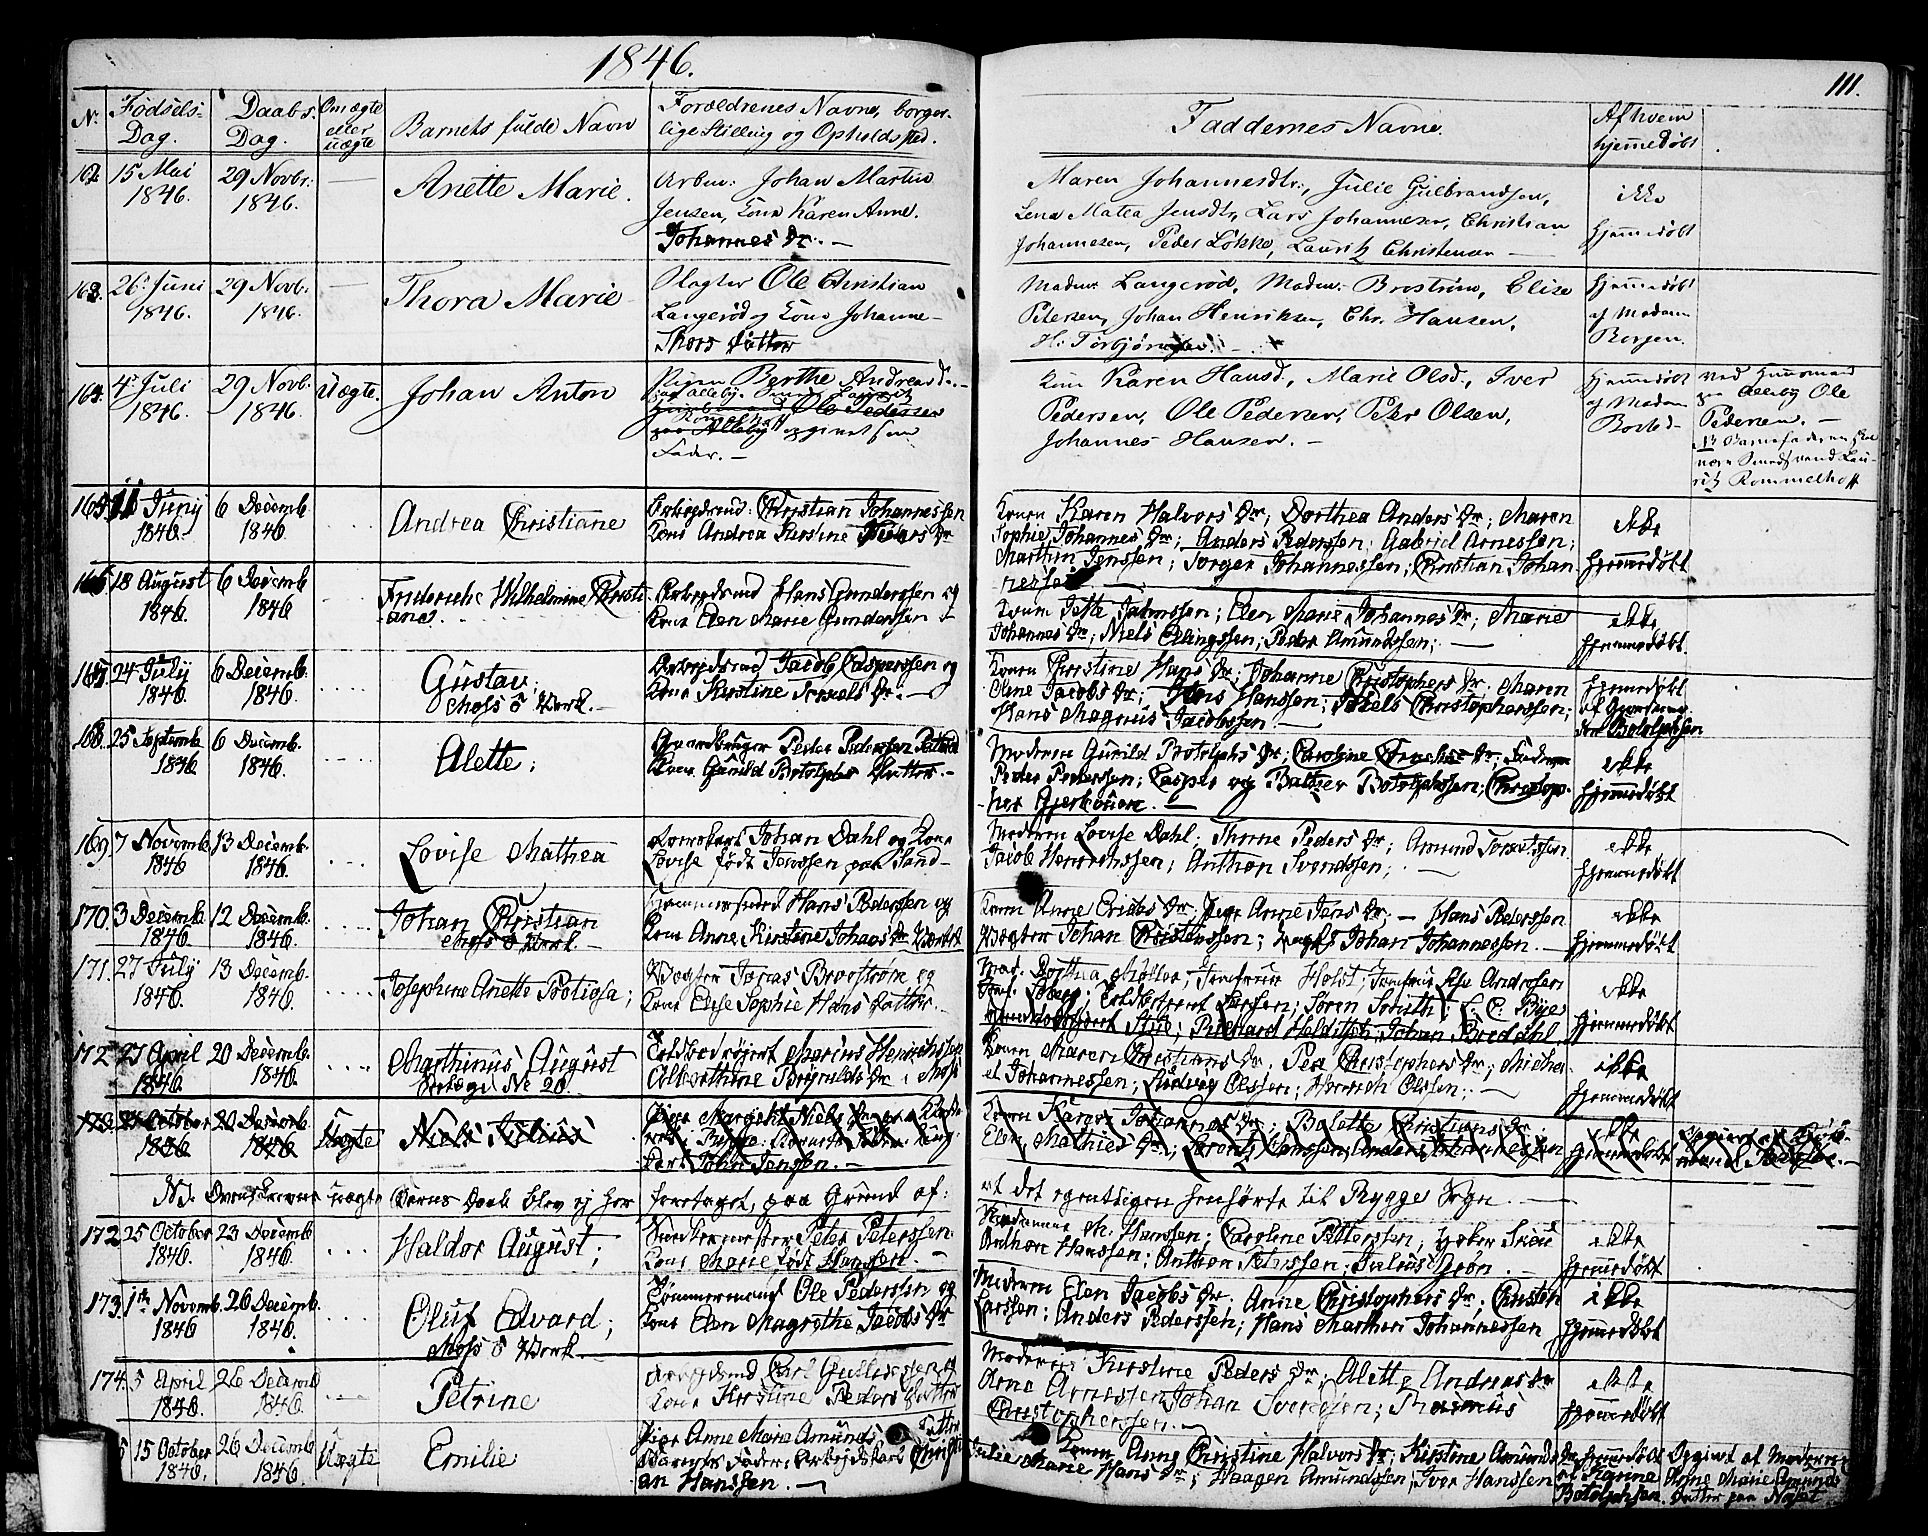 1846.
111.
No. Fødsels-Dag. Daabs-Dag. Om ægte eller uægte Barnets fulde Navn Forældrenes Navne, borgerlige Stilling og Opholdssted.
Faddernes Navne. Af hvem hjemmedøbt
162. 15 Mai 1846. 29 Novbr: 1846. — Anette Marie.
Arbm: Johan Martin
Jensen, Kone Karen Anne
Johannes Dr. —
Maren Johannesdtr:, Julie Gulbrandsen,
Lena Matea Jensdtr, Lars Johannesen, Christian
Johannesen, Peder Løkke, Lauritz Christensen —
ikke
hjemmedøbt
163. 26 Juni 1846. 29 Novb: 1846. — Thora Marie
Slagter Ole Christian
Langerød og Kone Johanne
Thors Datter
Madm: Langerød, Madm: Brostrøm, Elise
Petersen, Johan Henriksen, Chr. Hansen,
H: Torbjørnsen. —
hjemmedøbt
af Madam
Borgen.
164. 4 Juli 1846. 29 Novb: 1846. Uægte. Johan Anton
Pigen Berthe Andreasd. —
Ole Pedersen
paa Alleby opgivet som
Fader. —
Karen Hansd., Marie Olsd., Iver
Pedersen, Ole Pedersen, Peter Olsen,
Johannes Hansen. —
hjemmedøbt
af Madam
ved Huusmand
paa Alleby Ole
Pedersen. —
Barnefaderen skal
være Smedsvend Lau-
ritz Rommelhoff
165. 11 Juny 1846. 6 Decemb. 1846. .... Andrea Christiane
Arbejdsmd: Christian Johannessen
Kone Andrea Kirstine Peders Dr
Konen Karen Halvors Dr; Dorthea Anders Dr; Maren
Sophie Johannes Dr; Anders Pederssen; Gabriel Arnessen;
Marthin Jenssen; Jørgen Johannessen; Christian Johan
nessen —
ikke
hjemmedøbt
166. 18 August 1846. 6 Decemb 1846. .... Frideriche Wilhelmine Christi
-ane.
Arbejdsmd Hans Gunderssen og
Kone Elen Marie Gunderssen
Konen Jette Jahnssen; Elen Marie Johannes Dr; Marie
Johannes Dr; Niels Ellingssen; Peder Amundssen; —
ikke
hjemmedøbt
167. 24 July 1846. 6 Decemb. 1846. .... Gustav.
Moss ö Værk. —
Arbejdsmd Jacob Casperssen og
Kone Kirstine Israels Dr. —
Konen Kirstine Hans Dr; Johanne Christophers Dr. Maren
Oline Jacobs Dr; Jens Hanssen; Niels Christopherssen;
Hans Magnus Jacobssen —
hjemmedøbt
af
Botolphsen
168. 25 Septemb 1846 6 Decemb. 1846. .... Alette;
Gaardbruger Peder Pederssen
Kone Gunild Botolphs Datter. —
Moderen Gunild Botolphs Dr; Caroline Dr; Faderen
Peder Pederssen; Casper og Balther Botolphssen; Christop-
her Gjerløusen. —
ikke
hjemmedøbt
169. 7 Novemb. 1846 13 Decemb. 1846. .... Lovise Mathea
Johan Dahl og Kone
Lovise født Jenssen paa Sand-
Moderen Lovise Dahl; Thrine Peders Dr; Amund
Jacob Henrichssen; Anthon Svendssen; —
ikke
hjemmedøbt
170. 3 Decemb. 1846 12 Decemb. 1846. .... Johan Christian
Moss ö Værk. —
Hammersmed Hans Pederssen og
Kone Anne Kirstine Johans Dr Værket
Konen Anne Erichs Dr, Pige Anne Jens Dr; — Hans Pederssen
Vægter Johan Christenssen; Johan Johannessen. —
ikke
hjemmedøbt
171. 27 July 1846. 13 Decemb 1846. .... Josephine Anette Botiosa;
Vægter Jonas Brostrøm og
Kone Elise Sophie Hans Datter. —
Mad. Dorthea Møller; Jomfrue Holst; Jomfrue Else Anderssen
Larssen; Søren Smith; C. C. Bye
Richard Helditsh; Johan Bredahl.
ikke
hjemmedøbt
172 27 April 1846 20 Decemb. 1846. .... Marthinus August
Forlags No 20.
Toldbedrøjert Marius Henrichssen
Alberthine Brynilds Dr i Moss
Konen Maren Christians Dr; Pea Christophers Dr; Micha-
el Johannessen; Ludvig Olssen; Henrich Olssen; —
ikke
hjemmedøbt
173. 21 October 1846 20 Decemb. 1846 Uægte Niels Julius
Pige Margrethe Niels Dr
Rygge:
kart John Jenssen. —
Konen Karen Johannes Dr; Balette Christians Dr;
Elen Mathies Dr; Lorents Hanssen; Anders
ikke
hjemmedøbt
NB. Ovenskrevne uægte Barns Daab blev ej her foretaget, paa Grund af:
at det egentligen henhørte til Rygge Sogn. —
172 25 October 1846 23 Decemb. 1846. .... Haldor August;
Peter Peterssen.
Kone Marie født Hanssen. —
Madamme M. Hanssen; Caroline Petterssen; Høker
Anthon Hanssen; Anthon Peterssen; Julius Grøn. —
ikke
hjemmedøbt
173. 1ste Novemb. 1846 26 Decemb. 1846. .... Oluf Edvard;
Moss ö Værk. —
Tømmermand Ole Pederssen og
Kone Elen Magrethe Jacobs Dr
Moderen Elen Jacobs Dr. Anne Christophers Dr; Christen
Larssen; Anders Pederssen; Hans Marthin Johannessen
ikke
hjemmedøbt
174. 5 April 1846. 26 Decemb 1846. .... Petrine
Arbejdsmd Carl Gulliksen og
Kone Kirstine Peders Datter
Moderen Kirstine Peders Dr; Alette Andreas Dr
Arne Arnessen Johan Svendsen; Rasmus
Christopherssen. —
ikke
hjemmedøbt
5 15 October 1846. 26 Decemb 1846. Uægte Emilie
Pige Anne Marie Amunds Datter
Barnets Fader: Arbejdskarl Christi
an Hanssen. —
Konen Anne Christine Halvors Dr; Kirstine Amunds Dr
Julie Marie Hans Dr; Haagen Amundssen; Iver Hanssen
hjemmedøbt
af Hanne
Botolphsen.
Opgivet af Moderen
Anne Marie Amunds
Datter paa Noset